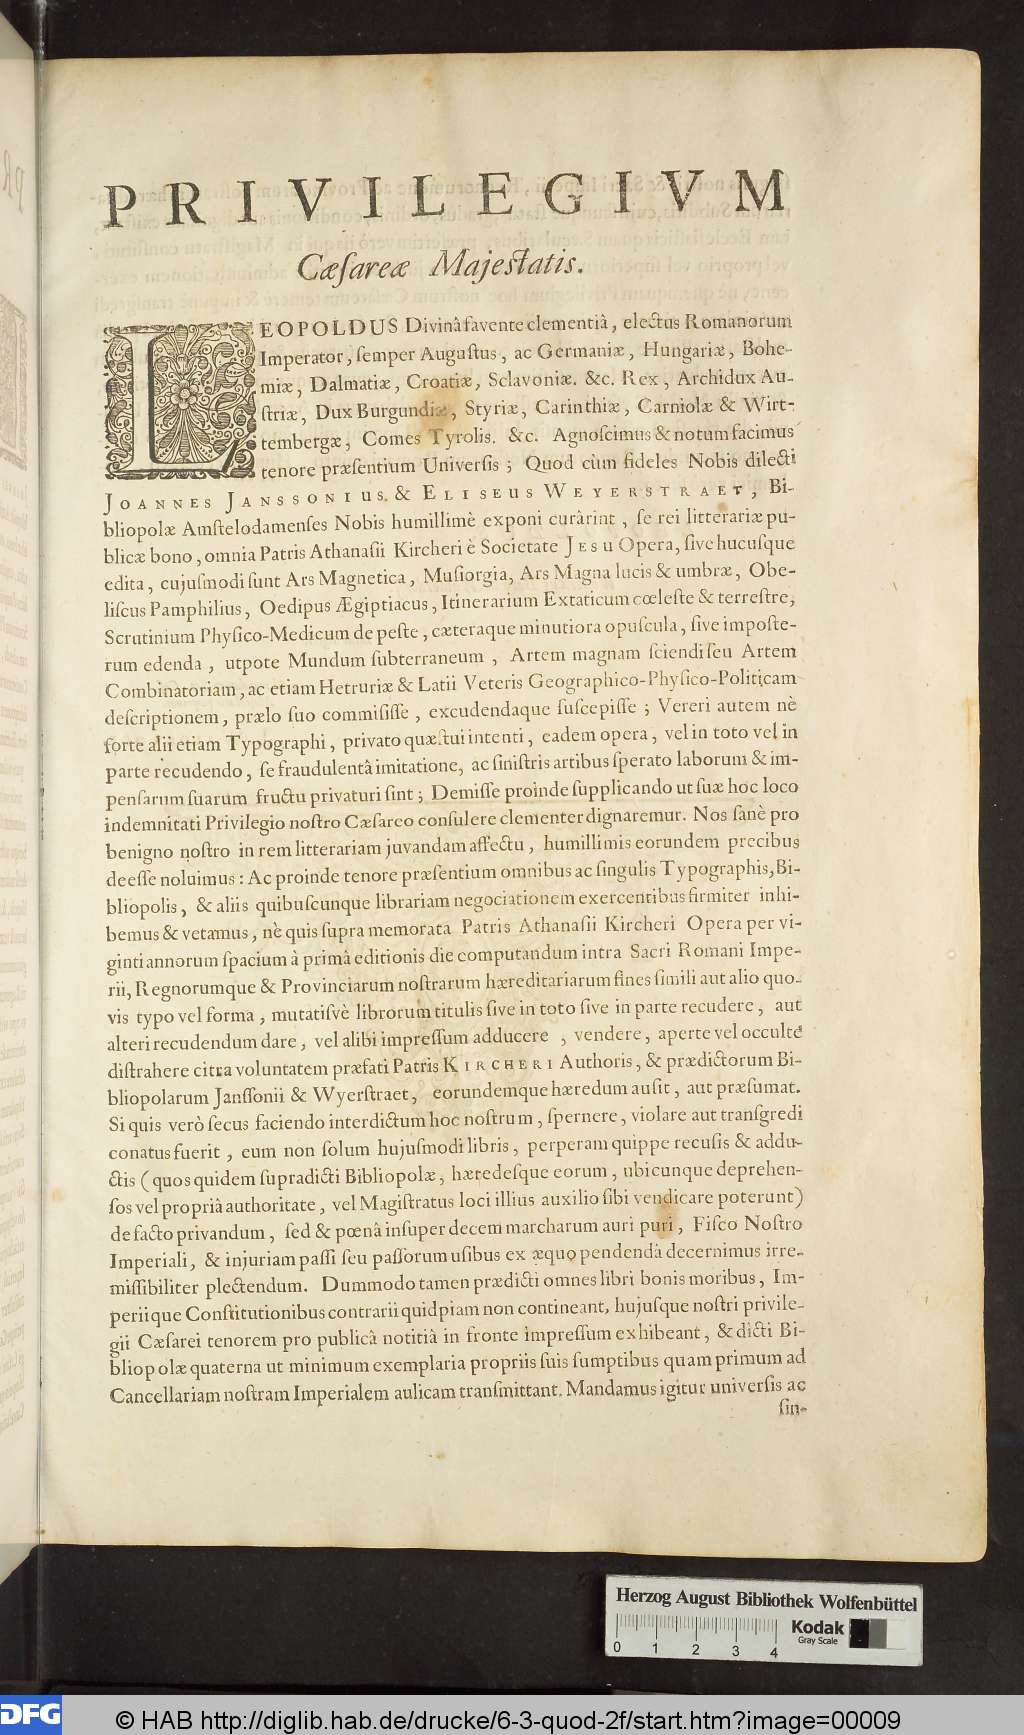 PRIVILEGIVM
Cæſareæ Majeſtatis.
LEOPOLDUS Divinâ favente clementiâ, electus Romanorum
Imperator, ſemper Auguſtus, ac Germaniæ, Hungariæ, Bohe-
miæ, Dalmatiæ, Croatiæ, Sclavoniæ. &c. Rex, Archidux Au-
ſtriæ, Dux Burgundiæ, Styriæ, Carinthiæ, Carniolæ & Wirt-
tembergæ, Comes Tyrolis. &c. Agnoſcimus & notum facimus
tenore præſentium Univerſis; Quod cùm fideles Nobis dilecti
JOANNES JANSSONIUS. & ELISEUS WEYERSTRAET, Bi-
bliopolæ Amſtelodamenſes Nobis humillimè exponi curârint, ſe rei litterariæ pu-
blicæ bono, omnia Patris Athanaſii Kircheri è Societate JESU Opera, ſive hucuſque
edita, cujuſmodi ſunt Ars Magnetica, Muſiorgia, Ars Magna lucis & umbræ, Obe-
liſcus Pamphilius, Oedipus Ægiptiacus, Itinerarium Extaticum cœleſte & terreſtre,
Scrutinium Phyſico-Medicum de peſte, cæteraque minutiora opuſcula, ſive impoſte-
rum edenda, utpote Mundum ſubterraneum, Artem magnam ſciendi ſeu Artem
Combinatoriam, ac etiam Hetruriæ & Latii Veteris Geographico-Phyſico-Politicam
deſcriptionem, prælo ſuo commiſiſſe, excudendaque ſuſcepiſſe; Vereri autem nè
forte alii etiam Typographi, privato quæſtui intenti, eadem opera, vel in toto vel in
parte recudendo, ſe fraudulentâ imitatione, ac ſiniſtris artibus ſperato laborum & im-
penſarum ſuarum fructu privaturi ſint; Demiſſe proinde ſupplicando ut ſuæ hoc loco
indemnitati Privilegio noſtro Cæſareo conſulere clementer dignaremur. Nos ſanè pro
benigno noſtro in rem litterariam juvandam affectu, humillimis eorundem precibus
deeſſe noluimus: Ac proinde tenore præſentium omnibus ac ſingulis Typographis, Bi-
bliopolis, & aliis quibuſcunque librariam negociationem exercentibus firmiter inhi-
bemus & vetamus, nè quis ſupra memorata Patris Athanaſii Kircheri Opera per vi-
ginti annorum ſpacium à primâ editionis die computandum intra Sacri Romani Impe-
rii, Regnorumque & Provinciarum noſtrarum hæreditariarum fines ſimili aut alio quo-
vis typo vel forma, mutatiſvè librorum titulis ſive in toto ſive in parte recudere, aut
alteri recudendum dare, vel alibi impreſſum adducere, vendere, aperte vel occulte
diſtrahere citra voluntatem præfati Patris KIRCHERI Authoris, & prædictorum Bi-
bliopolarum Janſſonii & Wyerſtraet, eorundemque hæredum auſit, aut præſumat.
Si quis verò ſecus faciendo interdictum hoc noſtrum, ſpernere, violare aut tranſgredi
conatus fuerit, eum non ſolum hujuſmodi libris, perperam quippe recuſis & addu-
ctis (quos quidem ſupradicti Bibliopolæ, hæredeſque eorum, ubicunque deprehen-
ſos vel propriâ authoritate, vel Magiſtratus loci illius auxilio ſibi vendicare poterunt)
de facto privandum, ſed & pœnâ inſuper decem marcharum auri puri, Fiſco Noſtro
Imperiali, & injuriam paſſi ſeu paſſorum uſibus ex æquo pendendâ decernimus irre-
miſſibiliter plectendum. Dummodo tamen prædicti omnes libri bonis moribus, Im-
periique Conſtitutionibus contrarii quidpiam non contineant, hujuſque noſtri privile-
gii Cæſarei tenorem pro publicâ notitiâ in fronte impreſſum exhibeant, & dicti Bi-
bliopolæ quaterna ut minimum exemplaria propriis ſuis ſumptibus quam primum ad
Cancellariam noſtram Imperialem aulicam tranſmittant. Mandamus igitur univerſis ac
ſin-
Herzog August Bibliothek Wolfenbüttel
Kodak
Gray Scale
0 1 2 3 4
DFG
© HAB http://diglib.hab.de/drucke/6-3-quod-2f/start.htm?image=00009